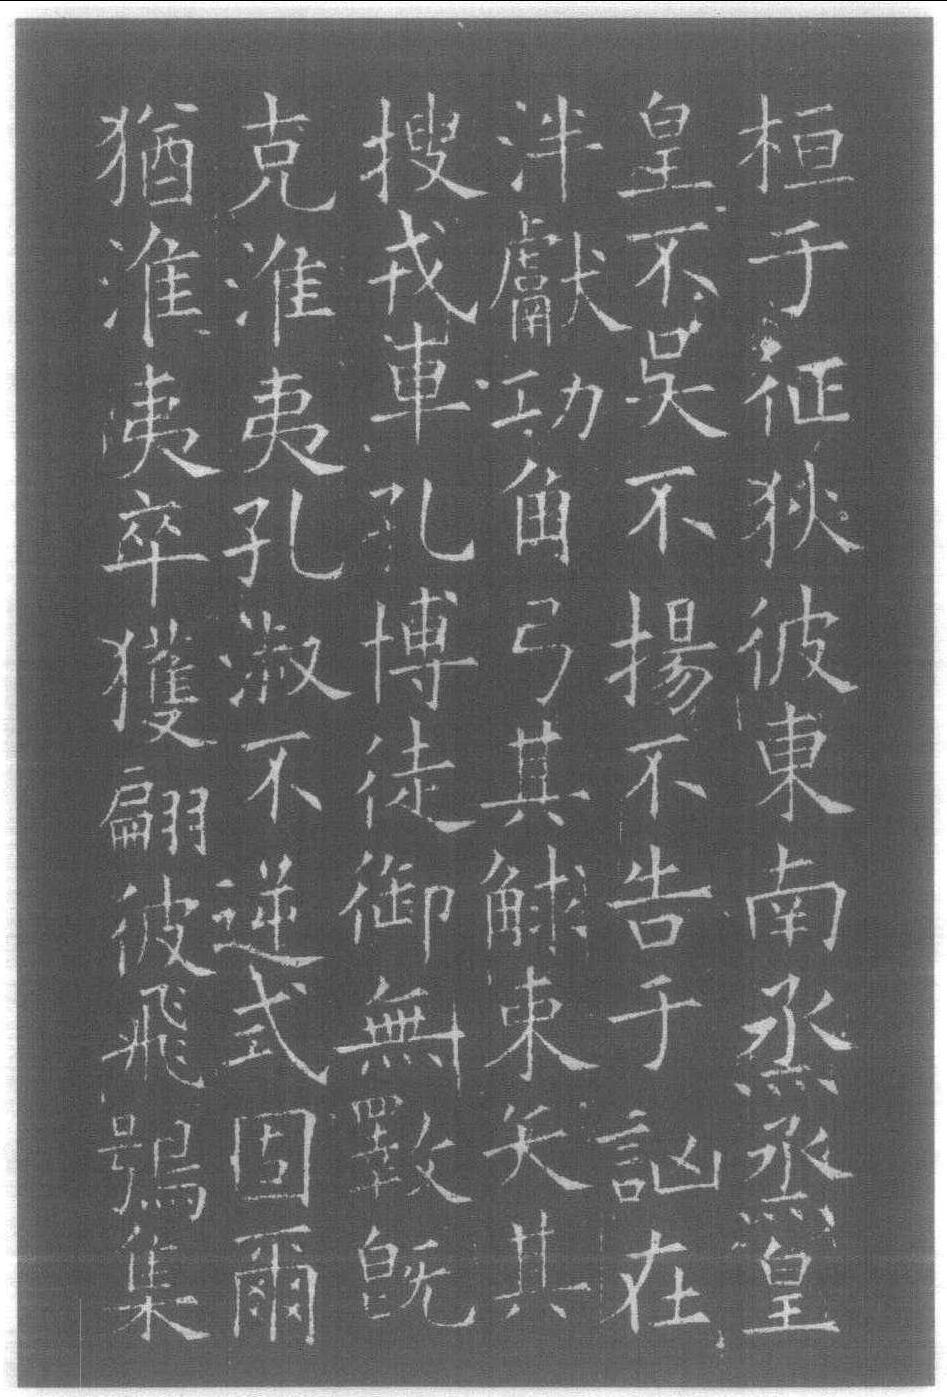 桓于征狄彼東南烝烝皇
皇不吳不揚不告于訩在
泮獻功角弓其觩束矢其
搜戎車孔博徒御無斁既
克淮夷孔淑不逆式固爾
猶淮夷卒獲翩彼飛鴞集